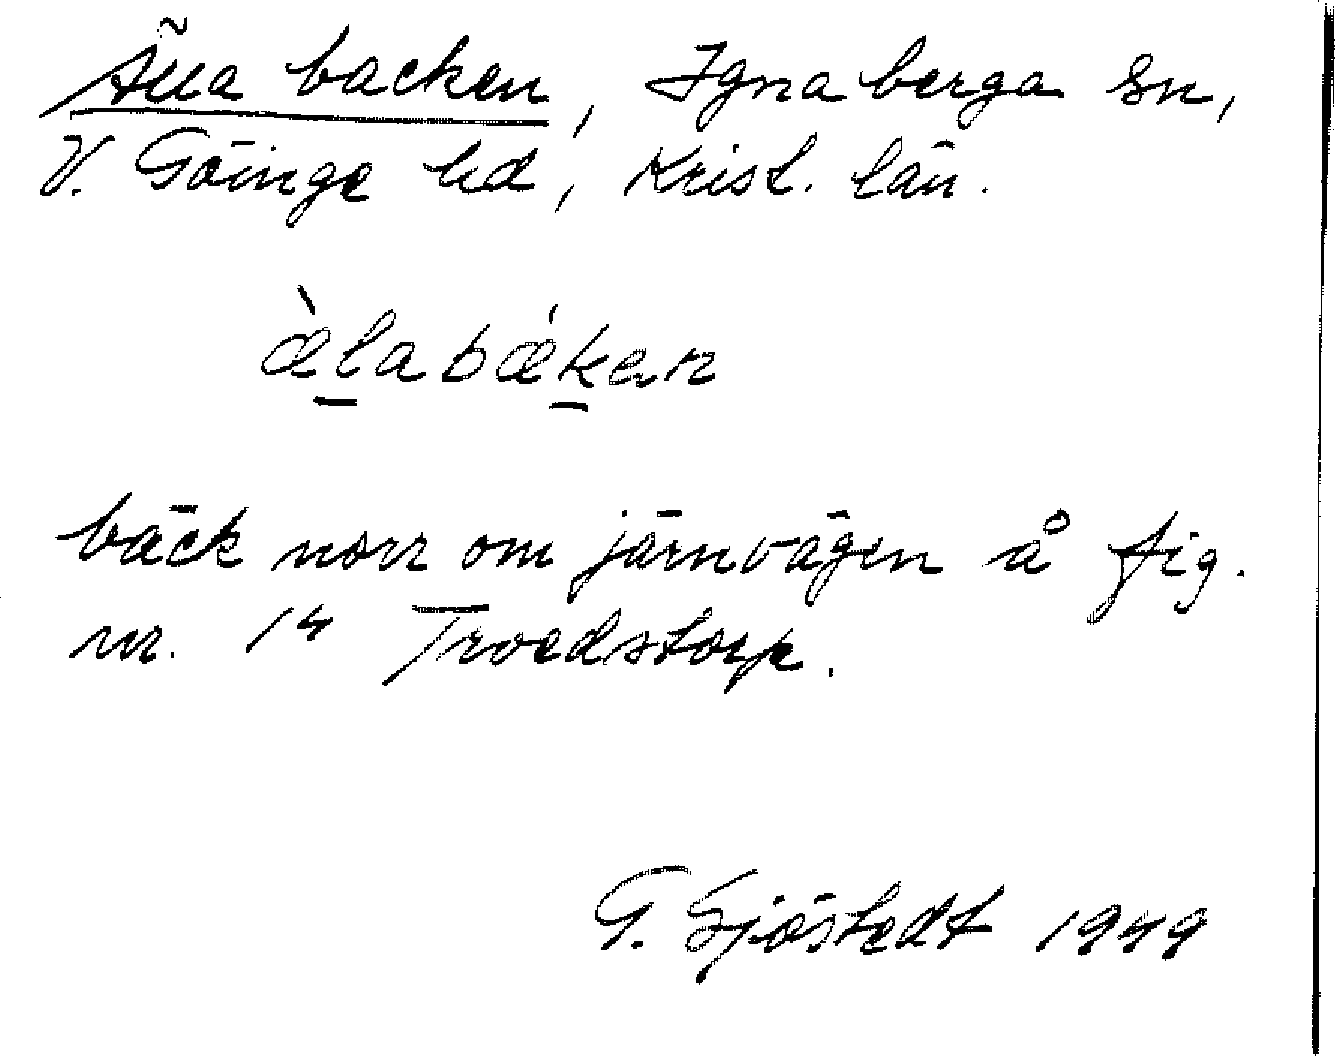 Älla backen, Ignaberga sn,
V. Göinge hd, Krist. län.
æ̀l̲abǽk̲en
bäck norr om järnvägen å fig.
nr. 14 Troedstorp.
G. Sjöstedt 1949